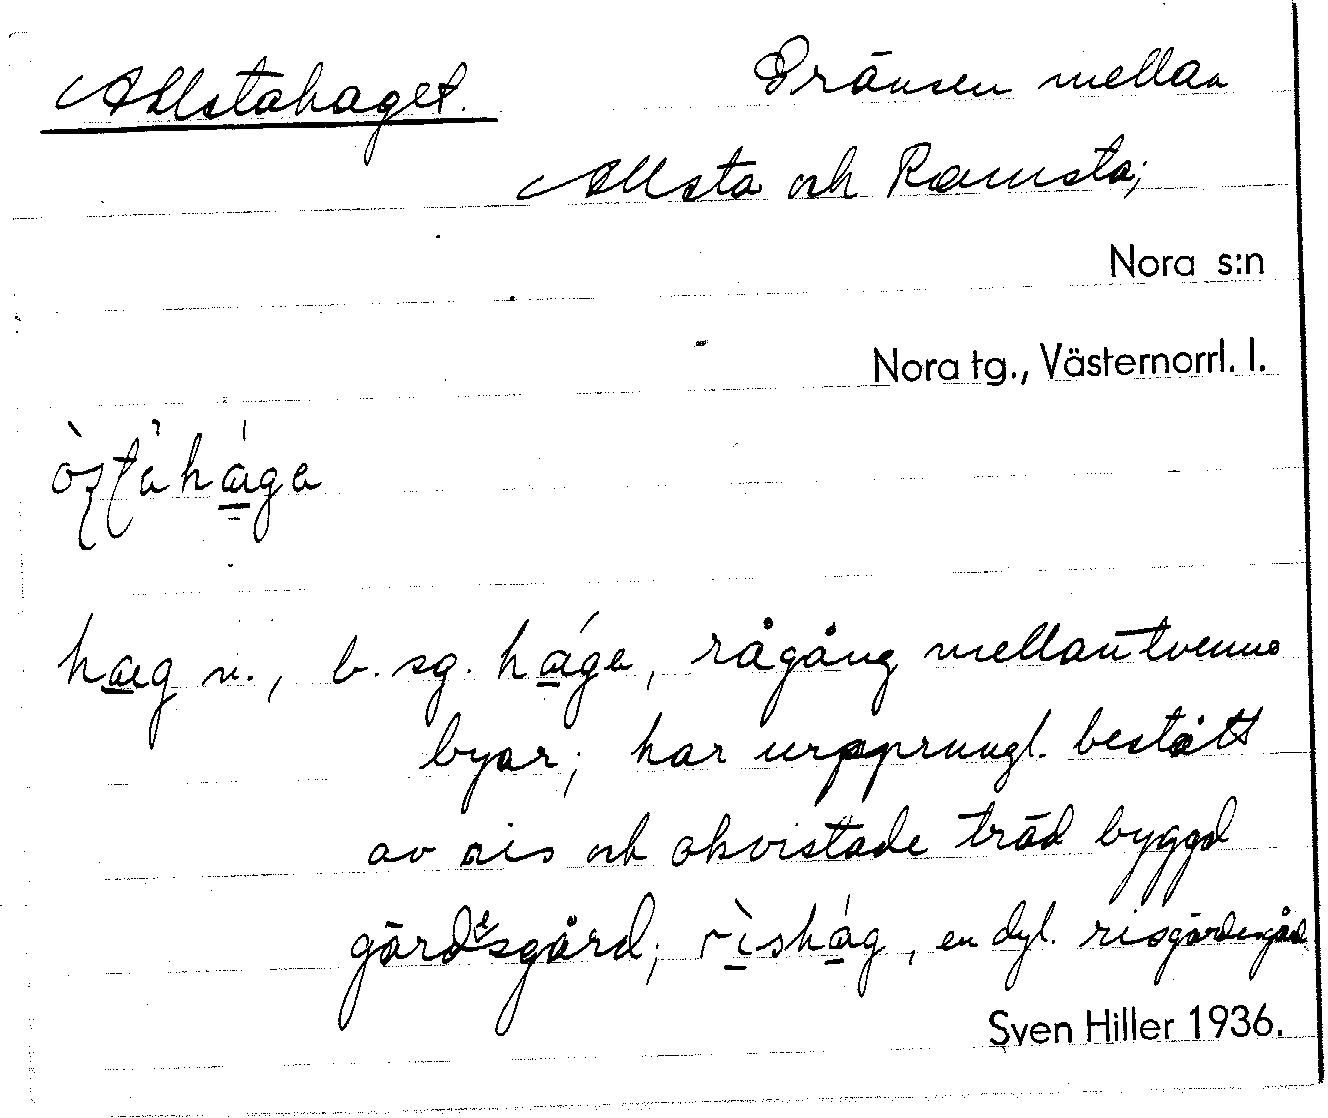 Allstahaget.
Gränsen mellan
Allsta och Ramsta;
Nora s:n
Nora tg., Västernorrl. l.
hag n., b. sg. hága, rågång mellan tvenne
byar; har urpprungl. bestått
av ris och okvistade träd byggd
gärdesgård; rìshág, en dyl. risgärdesgård
Sven Hiller 1936.